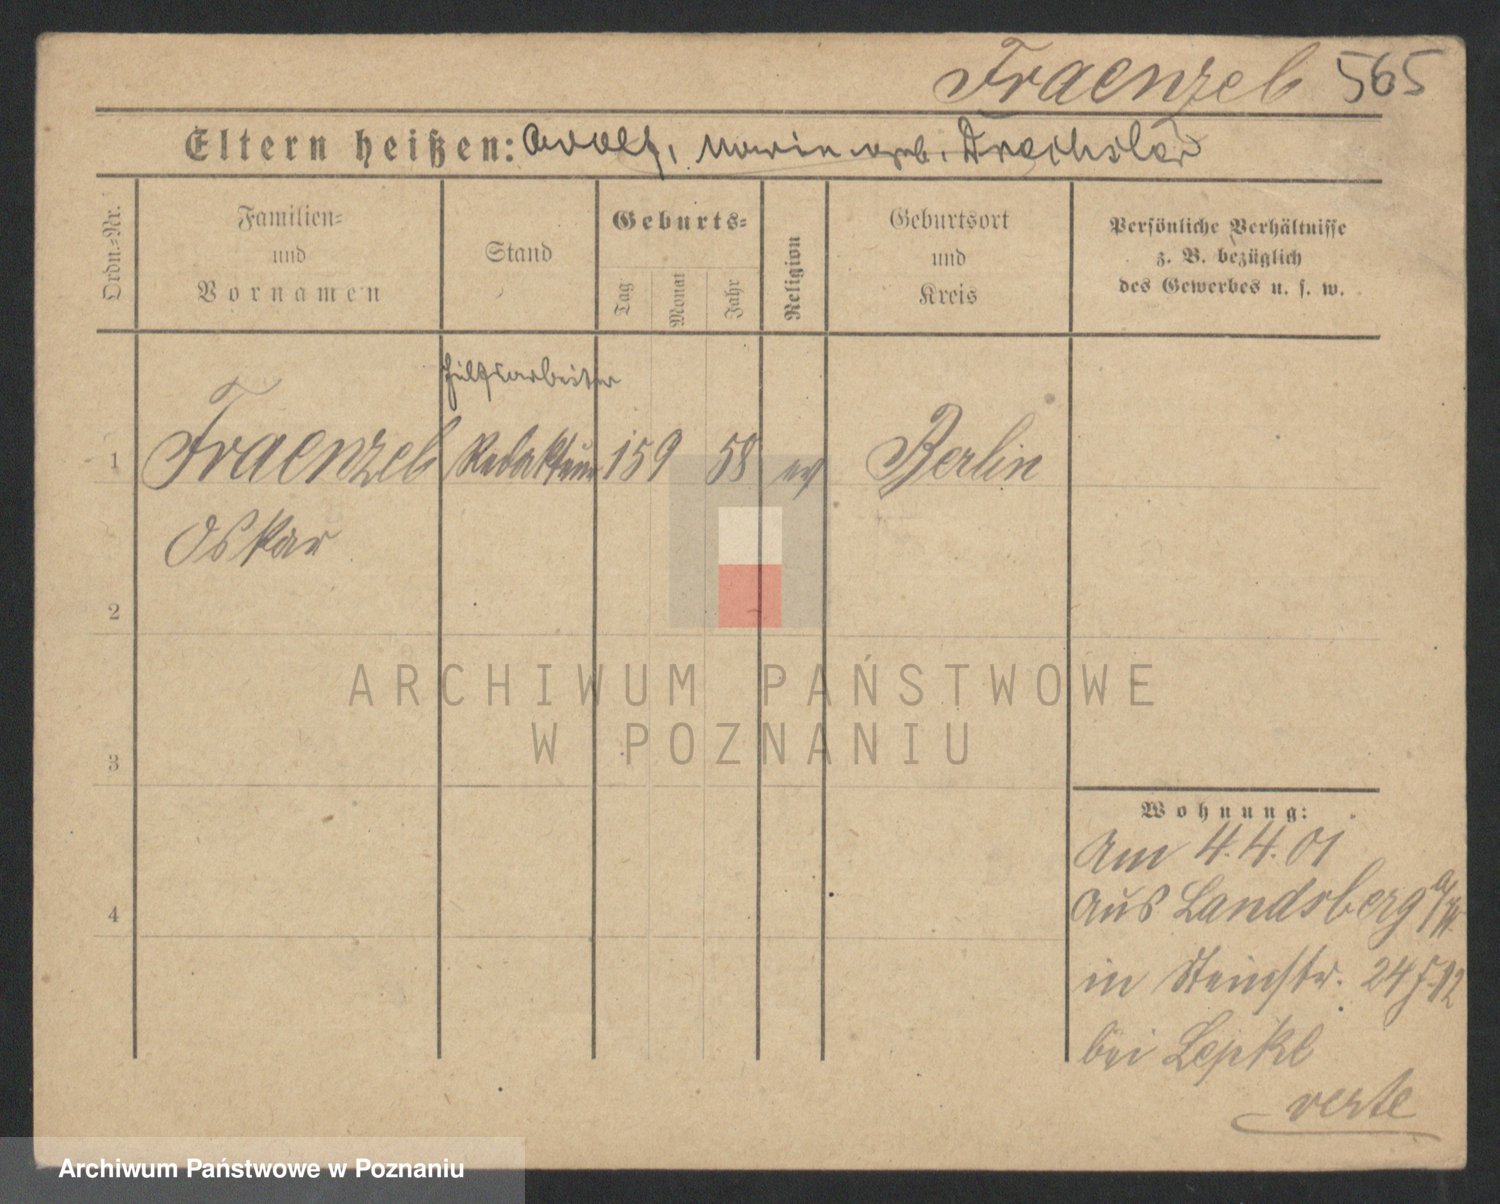 Fraenzel 565
Eltern heißen: Adolf, Marie geb. Drechsler
Ordn.-Nr.
Familien-
und
Vornamen
Stand
Geburts-
Tag
Monat
Jahr
Religion
Geburtsort
und
Kreis
Persönliche Verhältnisse
z. B. bezüglich
des Gewerbes u. s. w.
Hilfsarbeiter
1 Fraenzel Redakteur 15 9 58 ev Berlin
Oskar
2
3
4
ARCHIWUM PAŃSTWOWE
W POZNANIU
Wohnung:
Am 4.4.01
aus Landsberg a/W.
in Steinstr. 24
bei
verte
Archiwum Państwowe w Poznaniu